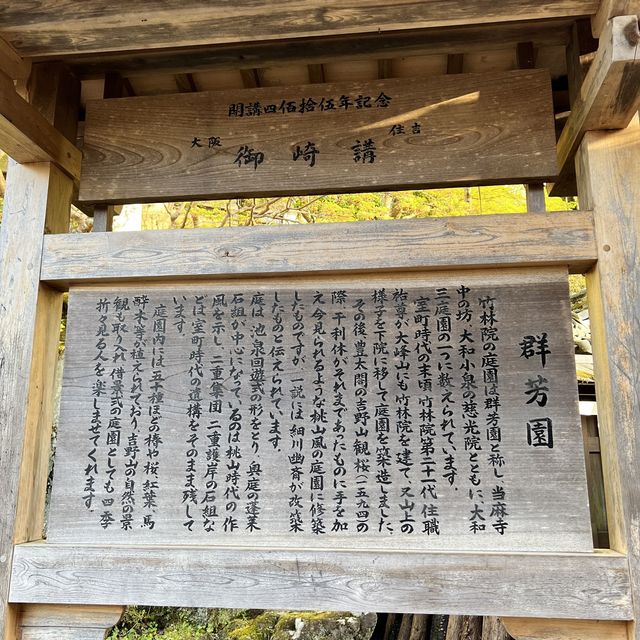 開講四佰拾伍年記念
大阪 住吉
御崎講
群芳園
竹林院の庭園は群芳園と称し、当麻寺
中の坊、大和小泉の慈光院とともに、大和
三庭園の一つに数えられています。
室町時代の末頃、竹林院第二十一代住職
祐尊が大峰山にも竹林院を建て、又山上の
様子を下院に移して庭園を築造しました。
その後豊太閤の吉野山観桜(一五九四)の
際、千利休がそれまであったものに手を加
え今見られるような桃山風の庭園に修築
したものですが、一説には細川幽斎が改築
したものと伝えられています。
庭は池泉回遊式の形をとり、奥庭の蓬莱
石組が中心になっているのは桃山時代の作
風を示し、二重集団、二重護岸の石組な
どは室町時代の遺構をそのまま残して
います。
庭園内には五十種ほどの椿や桜、紅葉、馬
酔木等が植えられており、吉野山の自然の景
観も取り入れ借景式の庭園としても四季
折々見る人を楽しませてくれます。